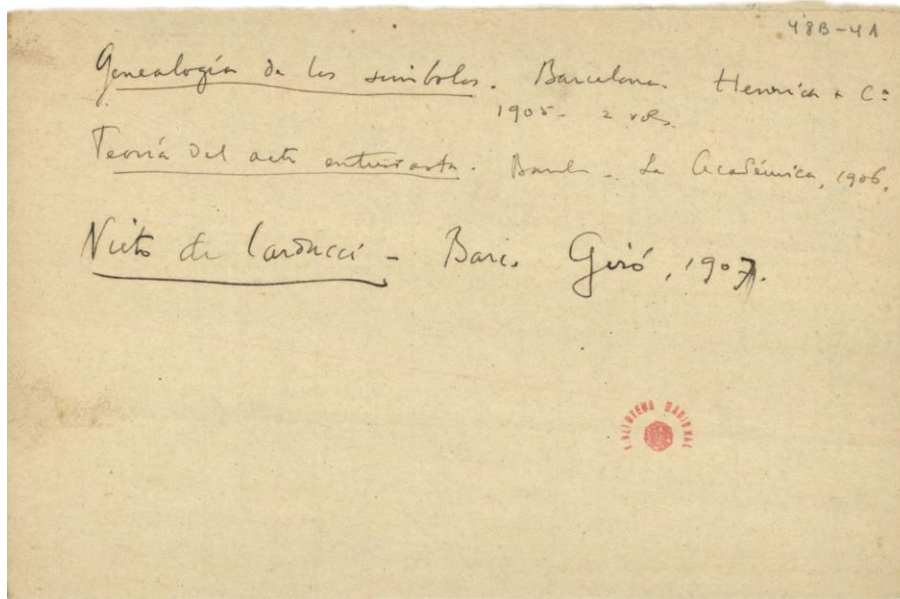 48B-41
Genealogía de los símbolos. Barcelona. Henrich & Cª
1905 - 2 vols.
Teoría del acto entusiasta. Barcel. La Académica, 1906.
Nieto de Carducci - Barc. Giró, 1907.
BIBLIOTECA NACIONAL